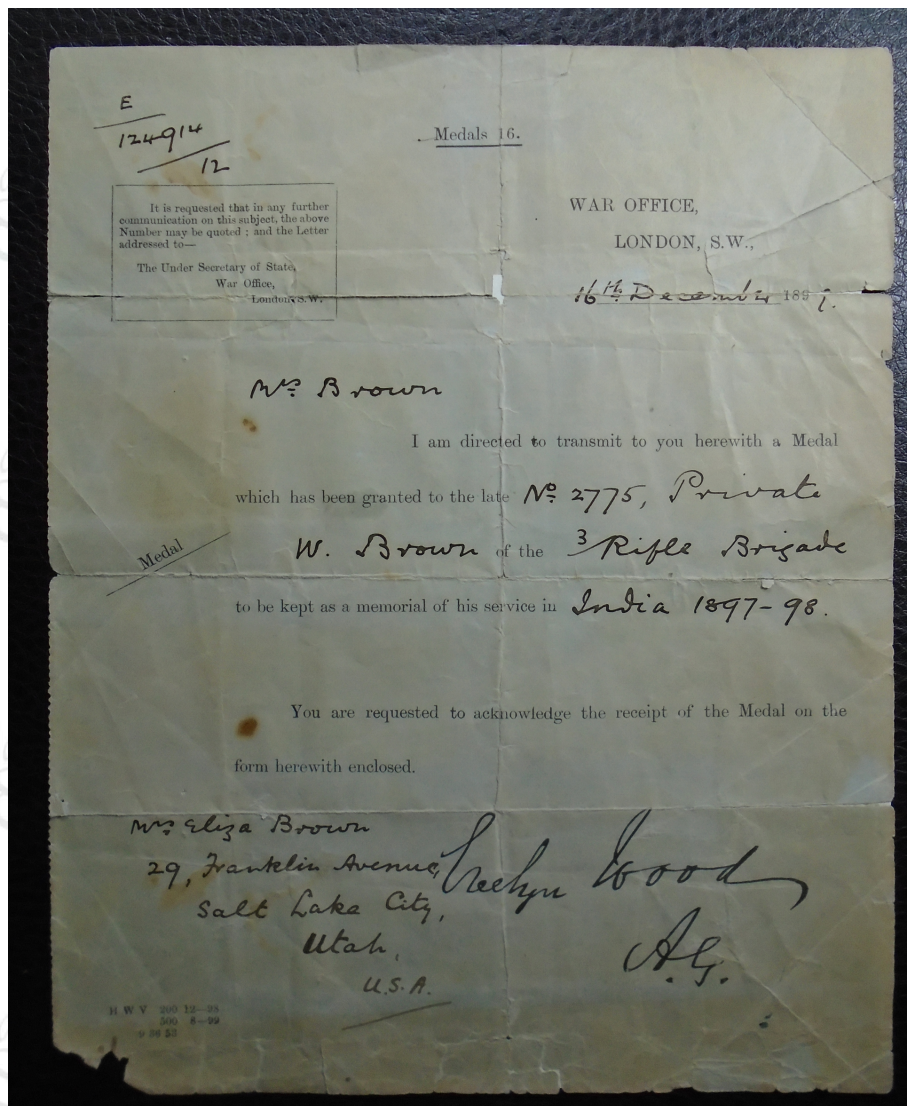 E
124914
12
Medals 16.
It is requested that in any further
communication on this subject, the above
Number may be quoted ; and the Letter
addressed to—
The Under Secretary of State,
War Office,
London, S.W.
WAR OFFICE,
LONDON, S.W.,
16th December 1899.
Mrs. Brown
I am directed to transmit to you herewith a Medal
which has been granted to the late No. 2775, Private
W. Brown of the 3/Rifle Brigade
Medal
to be kept as a memorial of his service in India 1897-98.
You are requested to acknowledge the receipt of the Medal on the
form herewith enclosed.
Mrs. Eliza Brown
29, Franklin Avenue,
Salt Lake City,
Utah,
U.S.A.
Evelyn Wood
A.G.
H W V 200 12—98
500 8—99